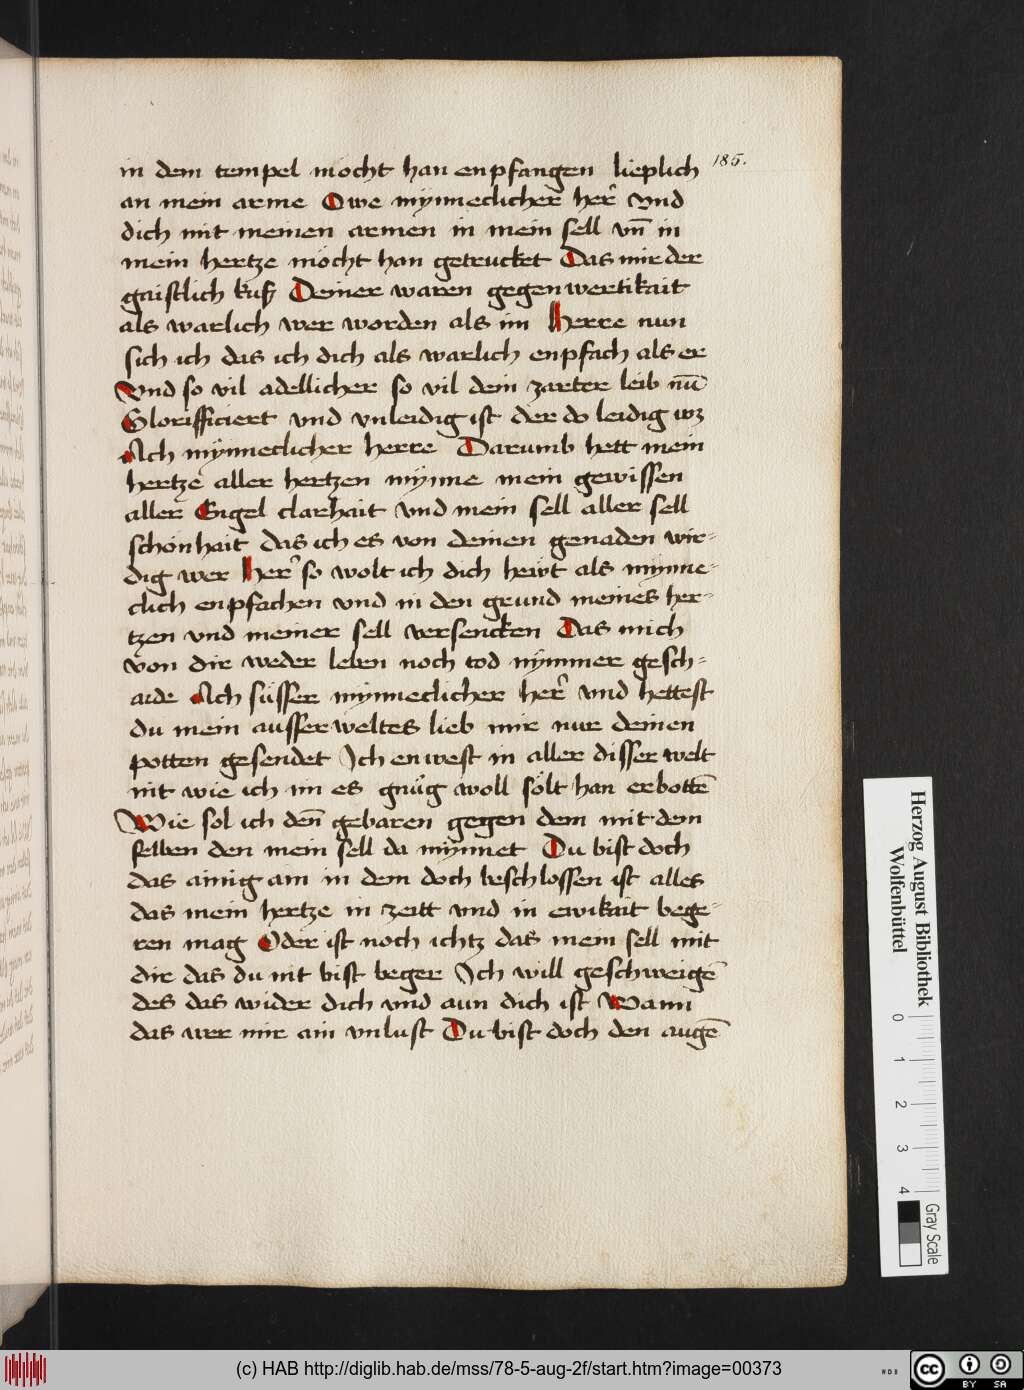 in dem tempel mocht han enpfangen lieplich
185.
an mein arme Owe mynneclicher her̃ vnd
dich mit meinen armen in mein sell vn̄ in
mein hertze möcht han getrucket Das mir der
gaistlich kuſz Deiner waren gegenwertikait
als warlich wer worden als im Herre nun
sich ich das ich dich als warlich enpfach als er
Vnd so vil adellicher so vil dein zarter leib nū
Glorifficiert vnd vnleidig ist der do leidig wz
Ach mynneclicher herre Darumb hett mein
hertze aller hertzen mynne mein gewissen
aller Engel clarhait vnd mein sell aller sell
schönhait das ich es von deinen genaden wir-
dig wer Her̃ so wolt ich dich hewt als mynne-
clich enpfachen vnd in den grund meines her-
tzen vnd meiner sell versencken Das mich
von dir weder leben noch tod nymmer gesch-
aide Ach süsser mynneclicher her̃ vnd hettest
du mein ausserweltes lieb mir nur deinen
potten gesendet Ich enwest in aller disser welt
nit wie ich im es gnůg woll sölt han erbottē
Wie sol ich den̄ gebaren gegen dem mit dem
selben den mein sell da mynnet Du bist doch
das ainig ain in dem doch beschlossen ist alles
das mein hertze in zeitt vnd in ewikait bege-
ren mag Oder ist noch ichtz das mein sell mit
dir das du nit bist beger Ich will geschweigē
des das wider dich vnd aun dich ist Wann
das wer mir ain vnlust Du bist doch den augē
Herzog August Bibliothek
Wolfenbüttel
0
1
2
3
4
Gray Scale
(c) HAB http://diglib.hab.de/mss/78-5-aug-2f/start.htm?image=00373
cc
BY SA